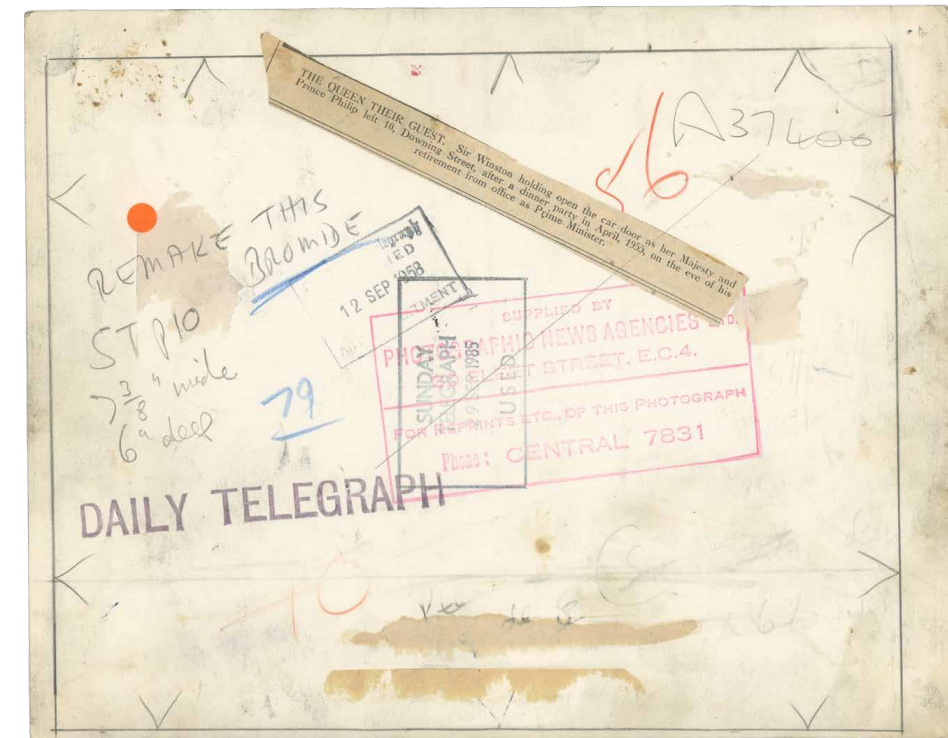 THE QUEEN THEIR GUEST. Sir Winston holding open the car door as her Majesty and
Prince Philip left 10, Downing Street, after a dinner party in April, 1955, on the eve of his
retirement from office as Prime Minister.
56
A37400
REMAKE THIS
BROMIDE
ST P10
7 3/8 " wide
6" deep
79
12 SEP 1958
SUNDAY
1985
USED
SUPPLIED BY
PHOTOGRAPHIC NEWS AGENCIES LTD.
STREET, E.C.4.
FOR REPRINTS ETC., OF THIS PHOTOGRAPH
Phone: CENTRAL 7831
DAILY TELEGRAPH